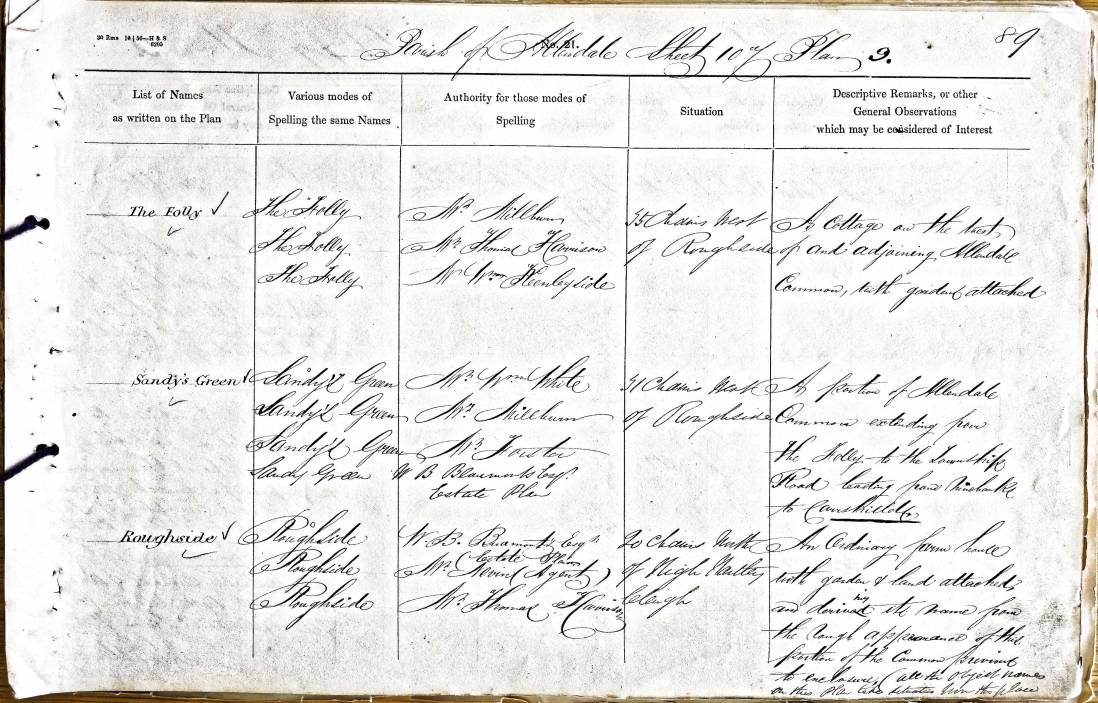 30 Rms 10|56—H & S
6205
No. 21.
Parish of Allendale Sheet 107 Plan 9.
89
List of Names
as written on the Plan
Various modes of
Spelling the same Names
Authority for those modes of
Spelling
Situation
Descriptive Remarks, or other
General Observations
which may be considered of Interest
The Folly
The Folly
The Folly
The Folly
Mr. Millburn
Mr. Thomas Harrison
Mr Wm Heenleyside
35 Chains West
of Roughside
A Cottage on the West
of and adjoining Allendale
Common, with garden attached
Sandy's Green
Sandy's Green
Sandy's Green
Sandy's Green
Sandy Green
Mr. Wm White
Mr. Millburn
Mr. Forster
W B Beaumont Esqr.
Estate Plan
31 Chains West
of Roughside
A portion of Allendale
Common extending from
the Folly to the Township
Road leading from
to
Roughside
Roughside
Roughside
Roughside
W. B. Beaumont Esqr
Estate Plan
Mr. Nevin (Agent)
Mr. Thomas Harrison
20 Chains North
of High
Cleugh
An Ordinary farm house
with garden & land attached,
and its name from
the rough appearance of this
portion of the Common previous
to enclosure, (all the object names
on this Plan take situation from this place